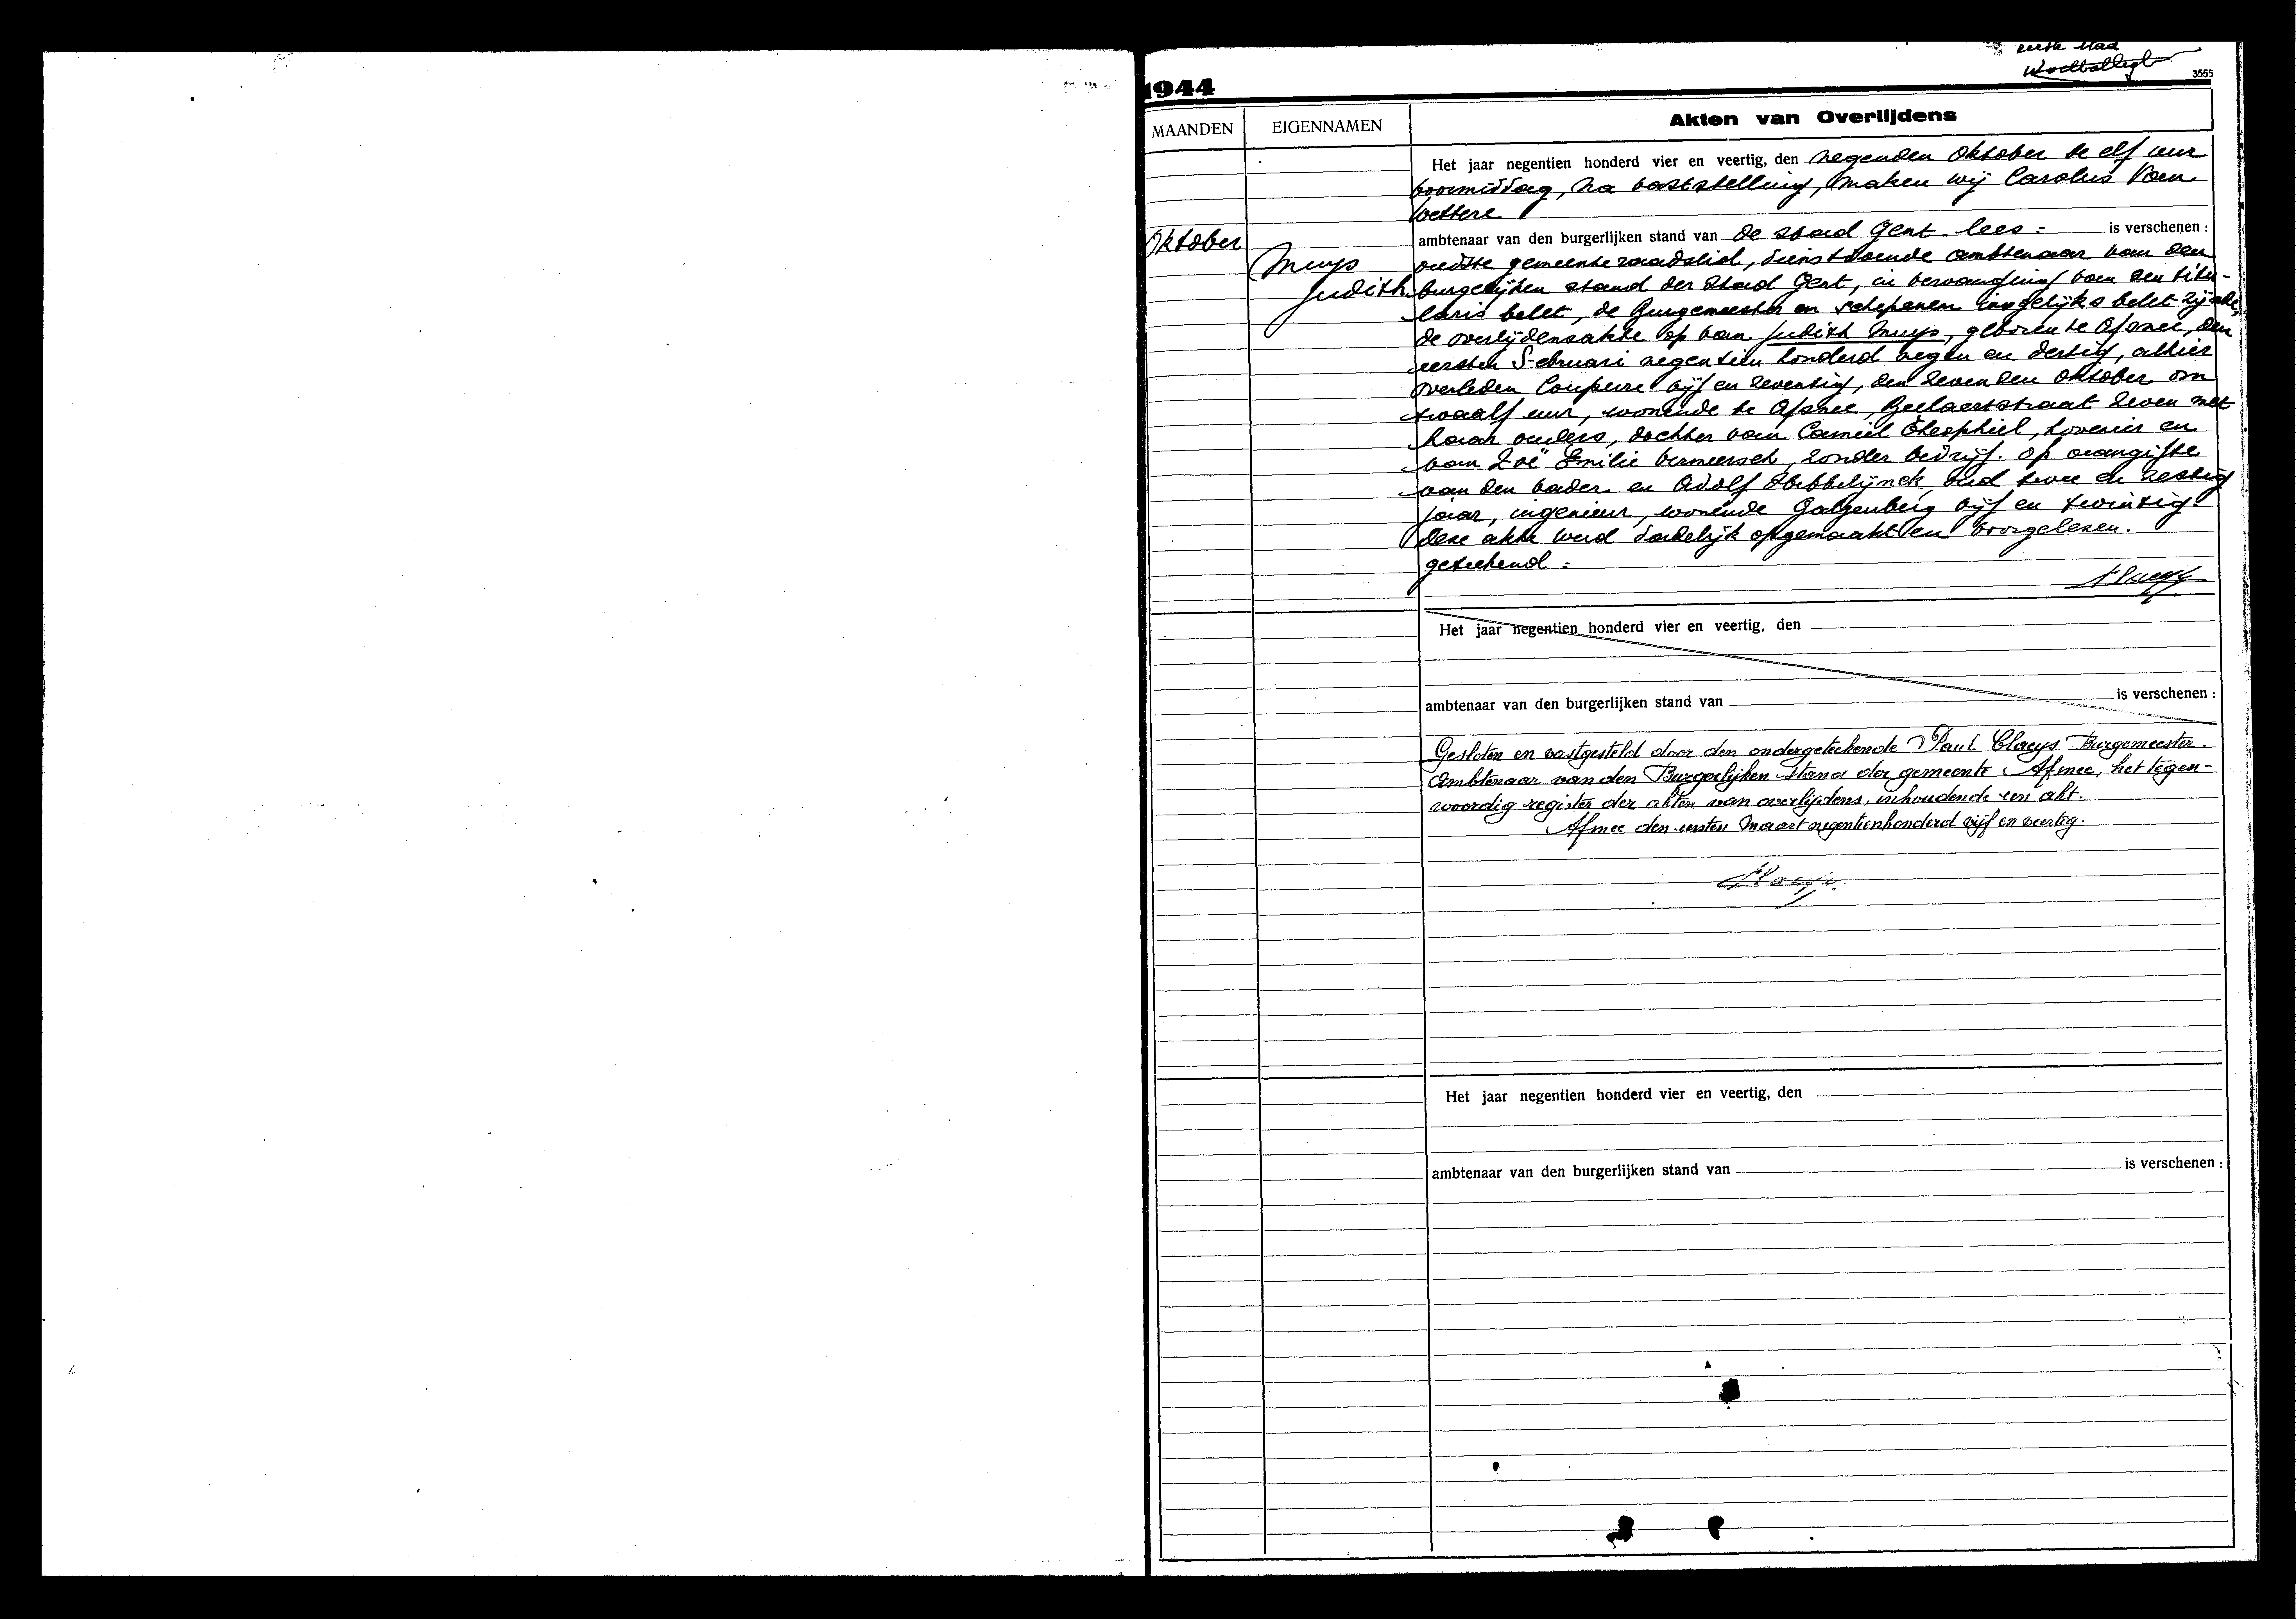 eerste blad
3555
1944
MAANDEN EIGENNAMEN Akten van Overlijdens
Het jaar negentien honderd vier en veertig, den negenden Oktober te elf uur
voormiddag, na vaststelling, maken wij Carolus Van
Wettere
Oktober
ambtenaar van den burgerlijken stand van de stad Gent lees : is verschenen :
Muys
Judith
oudste gemeenteraadslid, dienstdoende ambtenaar van den
burgerlijken stand der stad Gent, in vervanging van den titu-
laris belet, de Burgemeester en schepenen insgelijks belet zijnde,
de overlijdensakte op van Judith Muys, geboren te Afsnee, den
eersten Februari negentien honderd negen en dertig, alhier
overleden Coupure vijf en zeventig, den zevenden Oktober om
twaalf uur, wonende te Afsnee, Beelaertstraat zeven met
haar ouders, dochter van Camiel Theophiel, hovenier en
van Zoë Emilie Vermeersch, zonder bedrijf. Op aangifte
van den vader en Adolf Hebbelynck, oud twee en zestig
jaar, ingenieur, wonende Galgenberg vijf en twintig.
Deze akte werd dadelijk opgemaakt en voorgelezen.
getekend :
Claeys
Het jaar negentien honderd vier en veertig, den
ambtenaar van den burgerlijken stand van is verschenen :
Gesloten en vastgesteld door den ondergetekende Paul Claeys Burgemeester.
Ambtenaar van den Burgerlijken stand der gemeente Afsnee, het tegen-
woordig register der akten van overlijdens, inhoudende een akt.
Afsnee den eersten Maart negentienhonderd vijf en veertig.
Claeys
Het jaar negentien honderd vier en veertig, den
ambtenaar van den burgerlijken stand van is verschenen :